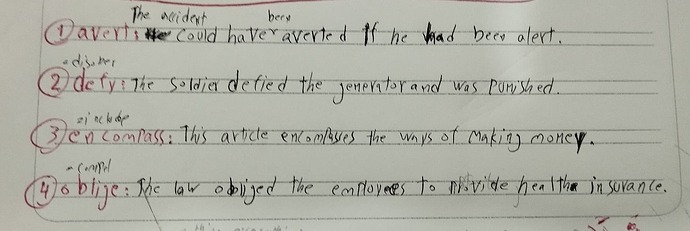 The accident been
① avert: could have averted if he had been alert.
- disober
② defy: The soldier defied the generator and was punished.
= include
③ encompass: This article encompasses the ways of making money.
- compel
④ oblige: The law obliged the employees to provide health insurance.